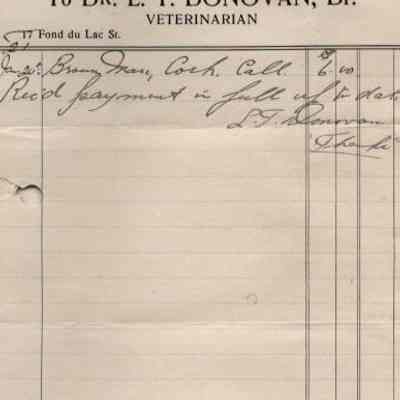 To Dr. L. T. DONOVAN, Dr.
VETERINARIAN
17 Fond du Lac St.
21
Jan 20 Brown Mare, Coch. Call $6.00
Rec'd payment in full up to date
L.T. Donovan
Thanks